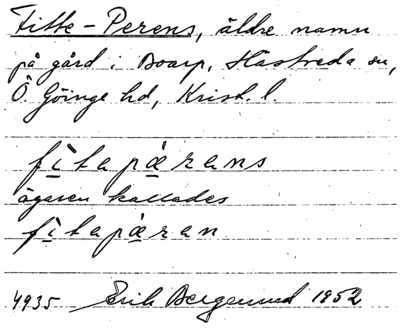 Fitte-Perens, äldre namn
på gård i Boarp, Hästveda sn,
Ö. Göinge hd, Krist. l.
fìtapæ̀rans
ägaren kallades
fìtapæ̀ran
4935 Erik Bergerund 1952